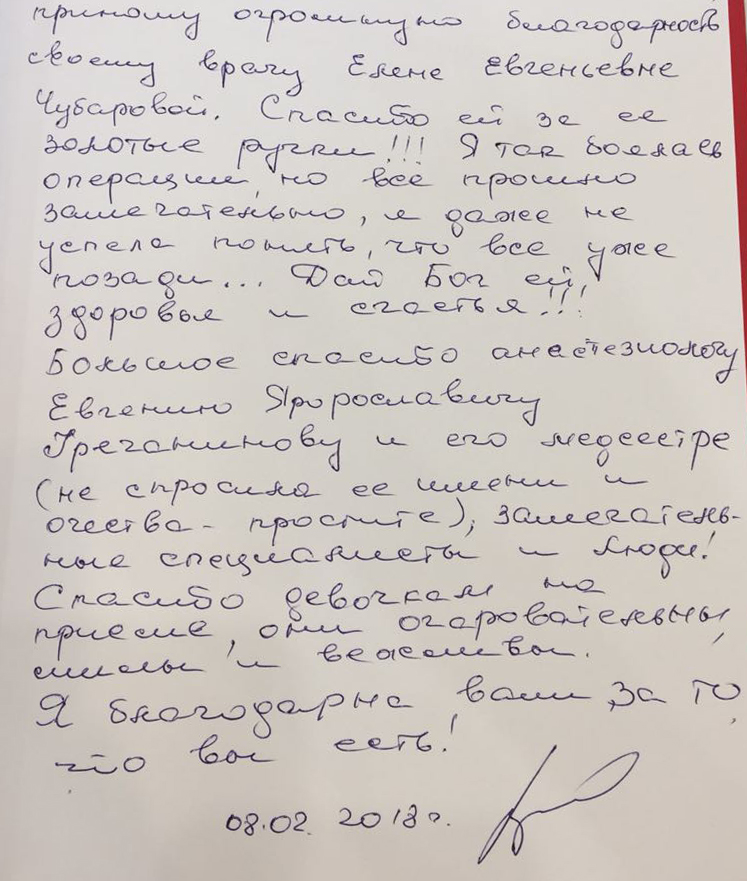 приношу огромную благодарность
своему врачу Елене Евгеньевне
Чубаровой. Спасибо ей за ее
золотые ручки!!! Я так боялась
операции, но всё прошло
замечательно, я даже не
успела понять, что все уже
позади... Дай Бог ей,
здоровья и счастья!!!
Большое спасибо анастезиологу
Евгению Яророславичу
Гречанинову и его медсестре
(не спросила ее имени и
очества - простите), замечатель-
ные специалисты и люди!
Спасибо девочкам на
приеме, они очаровательны,
милы и вежливы.
Я благодарна вам, за то,
что вы есть!
08.02. 2018г.